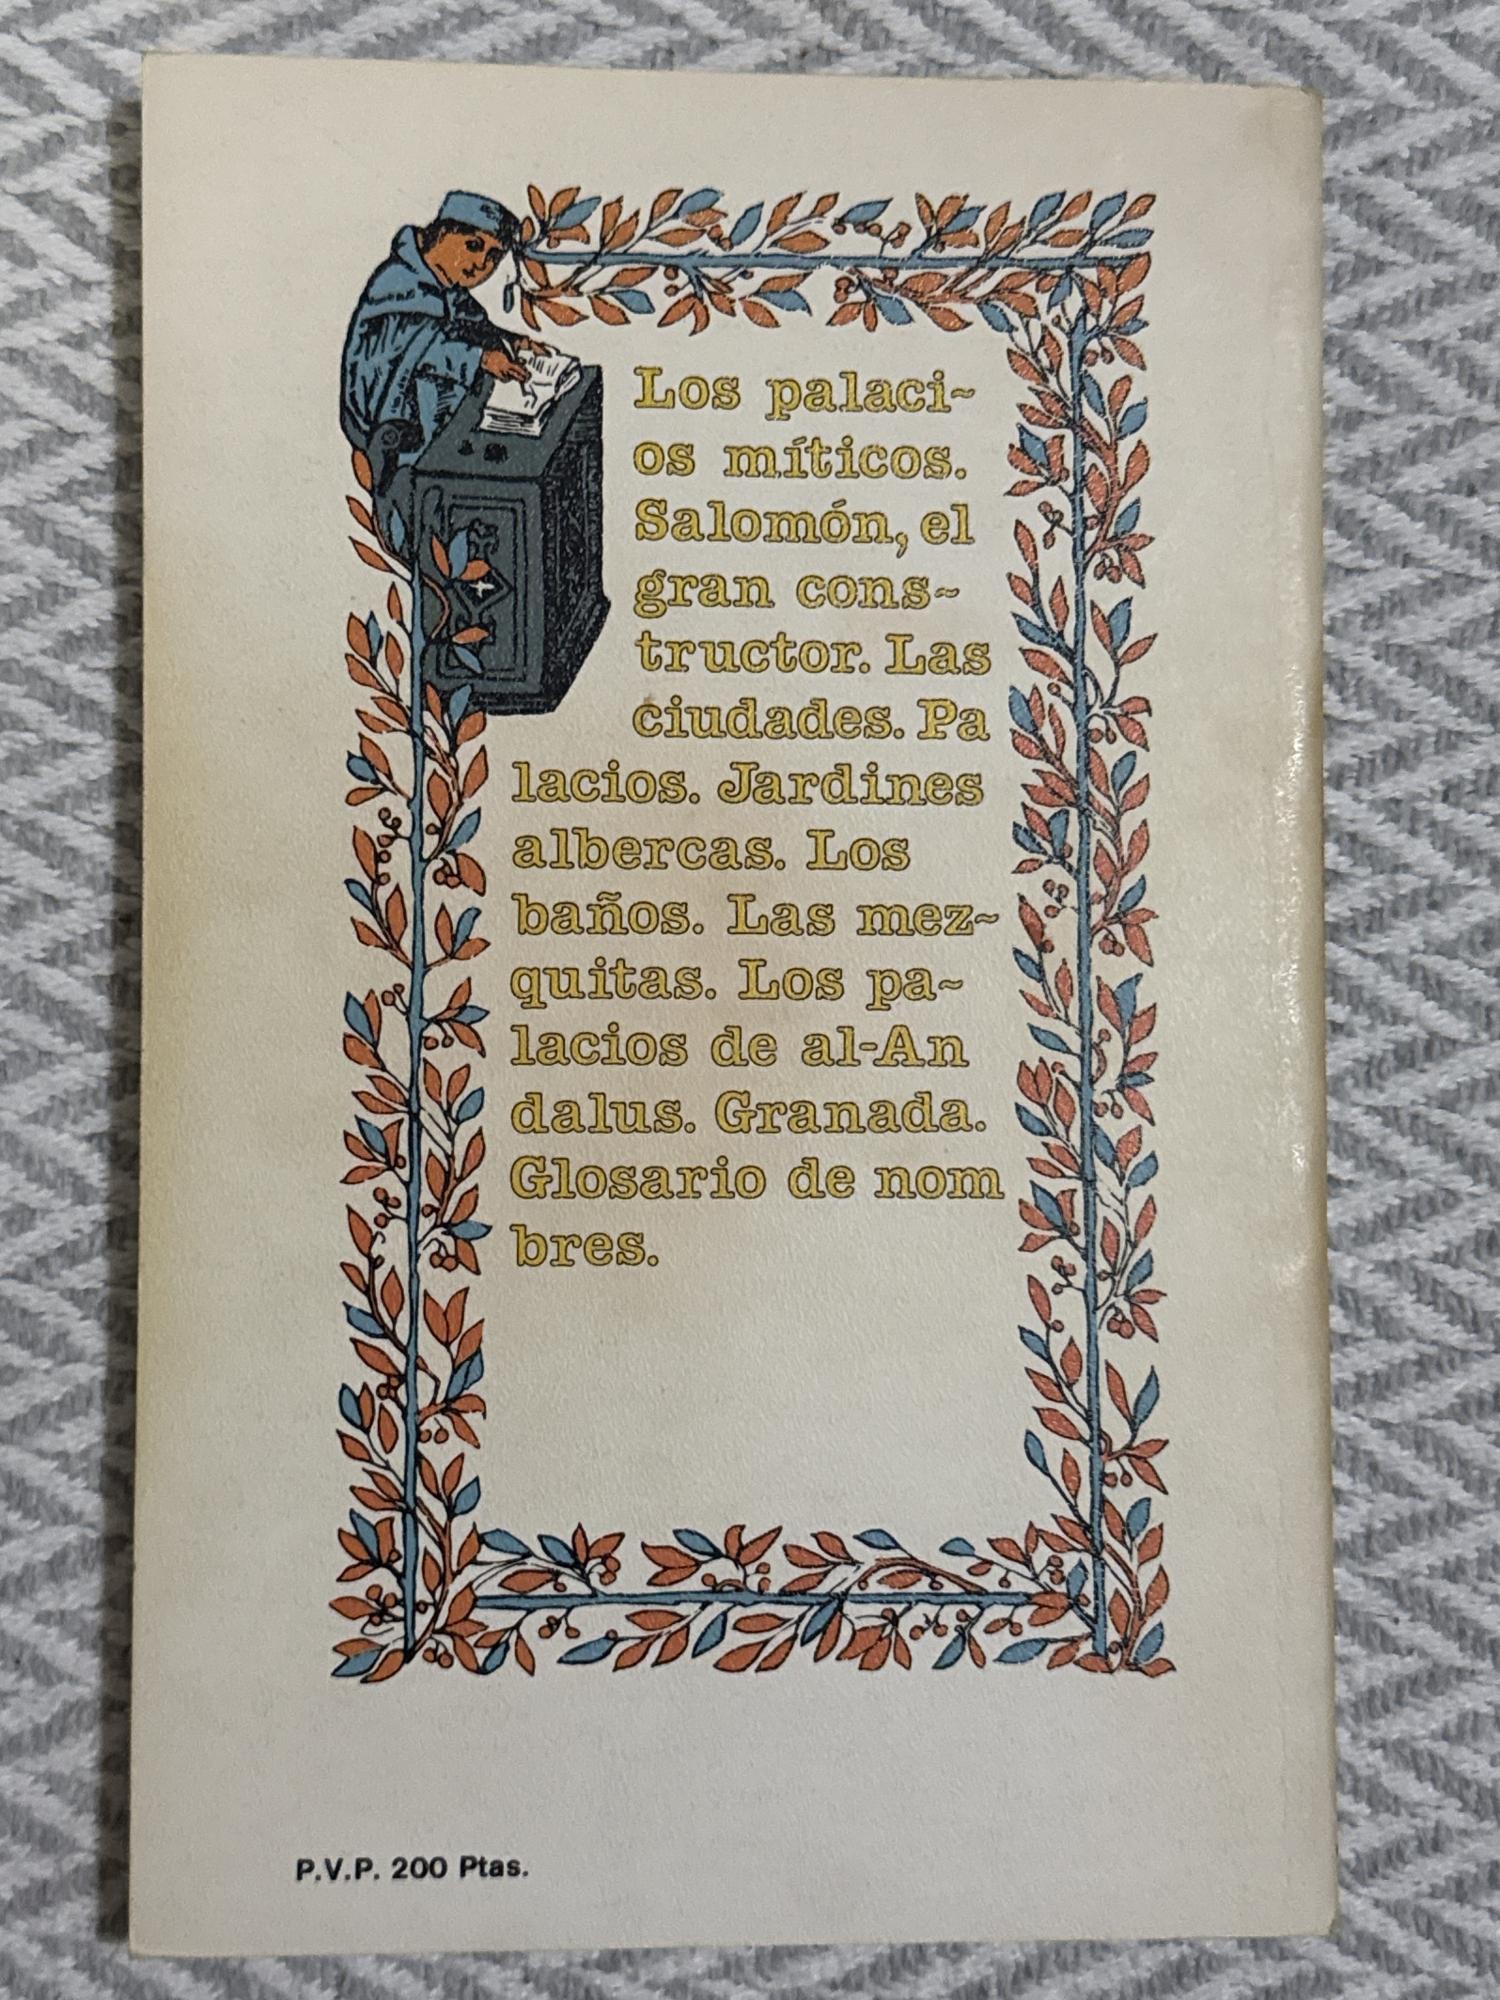 Los palaci~
os míticos.
Salomón, el
gran cons~
tructor. Las
ciudades. Pa
lacios. Jardines
albercas. Los
baños. Las mez~
quitas. Los pa~
lacios de al-An
dalus. Granada.
Glosario de nom
bres.
P.V.P. 200 Ptas.